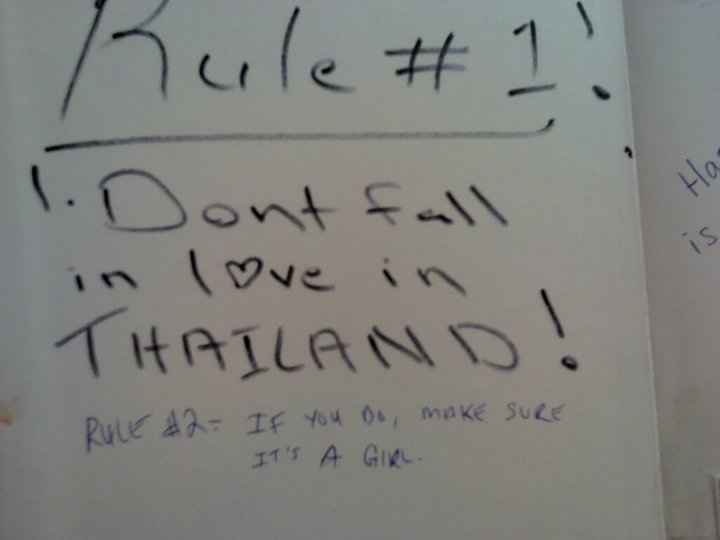 Rule # 1!
1. Dont fall
in l♡ve in
THAILAND!
RULE #2= IF YOU DO, MAKE SURE
IT'S A GIRL.
Ha
is